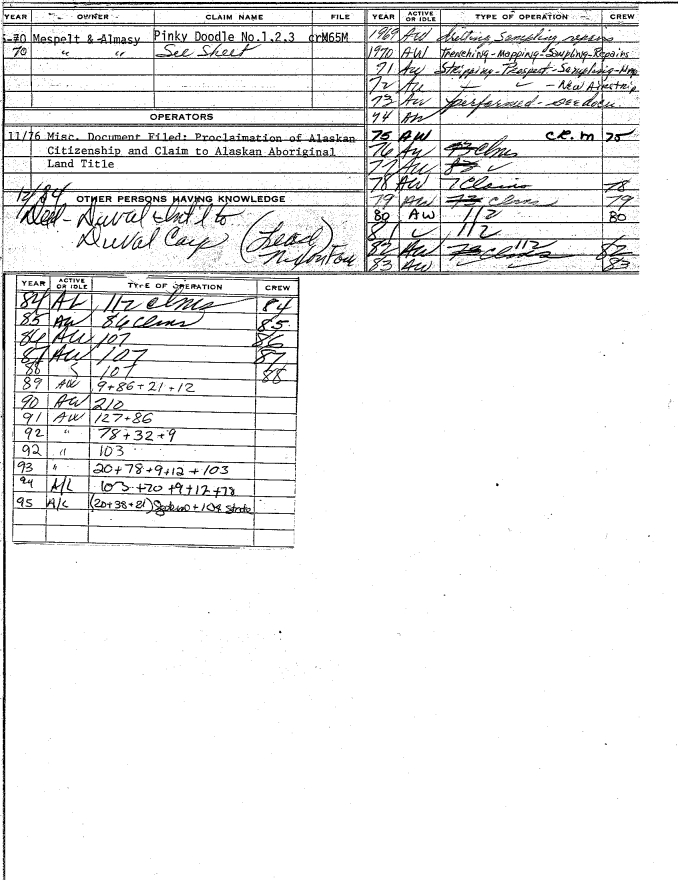 YEAR OWNER CLAIM NAME FILE
5-70 Mespelt & Almasy Pinky Doodle No.1.2.3 crM65M
70 " " See Sheet
OPERATORS
11/76 Misc. Document Filed: Proclaimation of Alaskan
Citizenship and Claim to Alaskan Aboriginal
Land Title
12/84 OTHER PERSONS HAVING KNOWLEDGE
Deed - Duval Intl to
DuVal Corp (Lead)
Nixon Fork
YEAR ACTIVE OR IDLE TYPE OF OPERATION CREW
1969 AW Drilling Sampling repairs
1970 AW Trenching-Mapping-Sampling-Repairs
71 AW Stripping-Prospect-Sampling-Map
72 AW - New Airstrip
73 AW performed - see docu.
74 AW
75 AW C.R.M 75
76 AW clms
77 AW
78 AW 7 Claims 78
79 AW clms 79
80 AW 112 80
81 ✓ 112
82 AW 112 clms 82
83 AW 83
YEAR ACTIVE OR IDLE TYPE OF OPERATION CREW
84 AL 112 clms 84
85 AW 86 Clms 85
86 AW 107 86
87 AW 107 87
88 107 88
89 AW 9+86+21+12
90 AW 210
91 AW 127+86
92 " 78+32+9
92 " 103
93 " 20+78+9+12+103
94 A/L 103+20+9+12+78
95 A/L (20+38+21) + 104 State